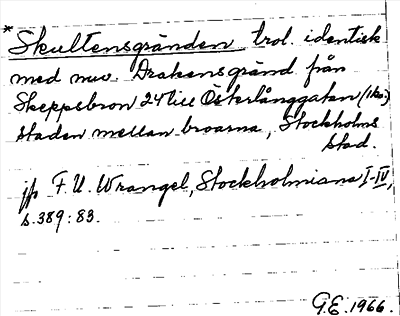 * Skultensgränden trol. identisk
med nuv. Drakensgränd från
Skeppsbron 24 till Österlånggatan (1 kv.)
staden mellan broarna, Stockholms
stad.
jfr F. U. Wrangel, Stockholmiana I-IV,
s. 389: 83.
G.E. 1966.